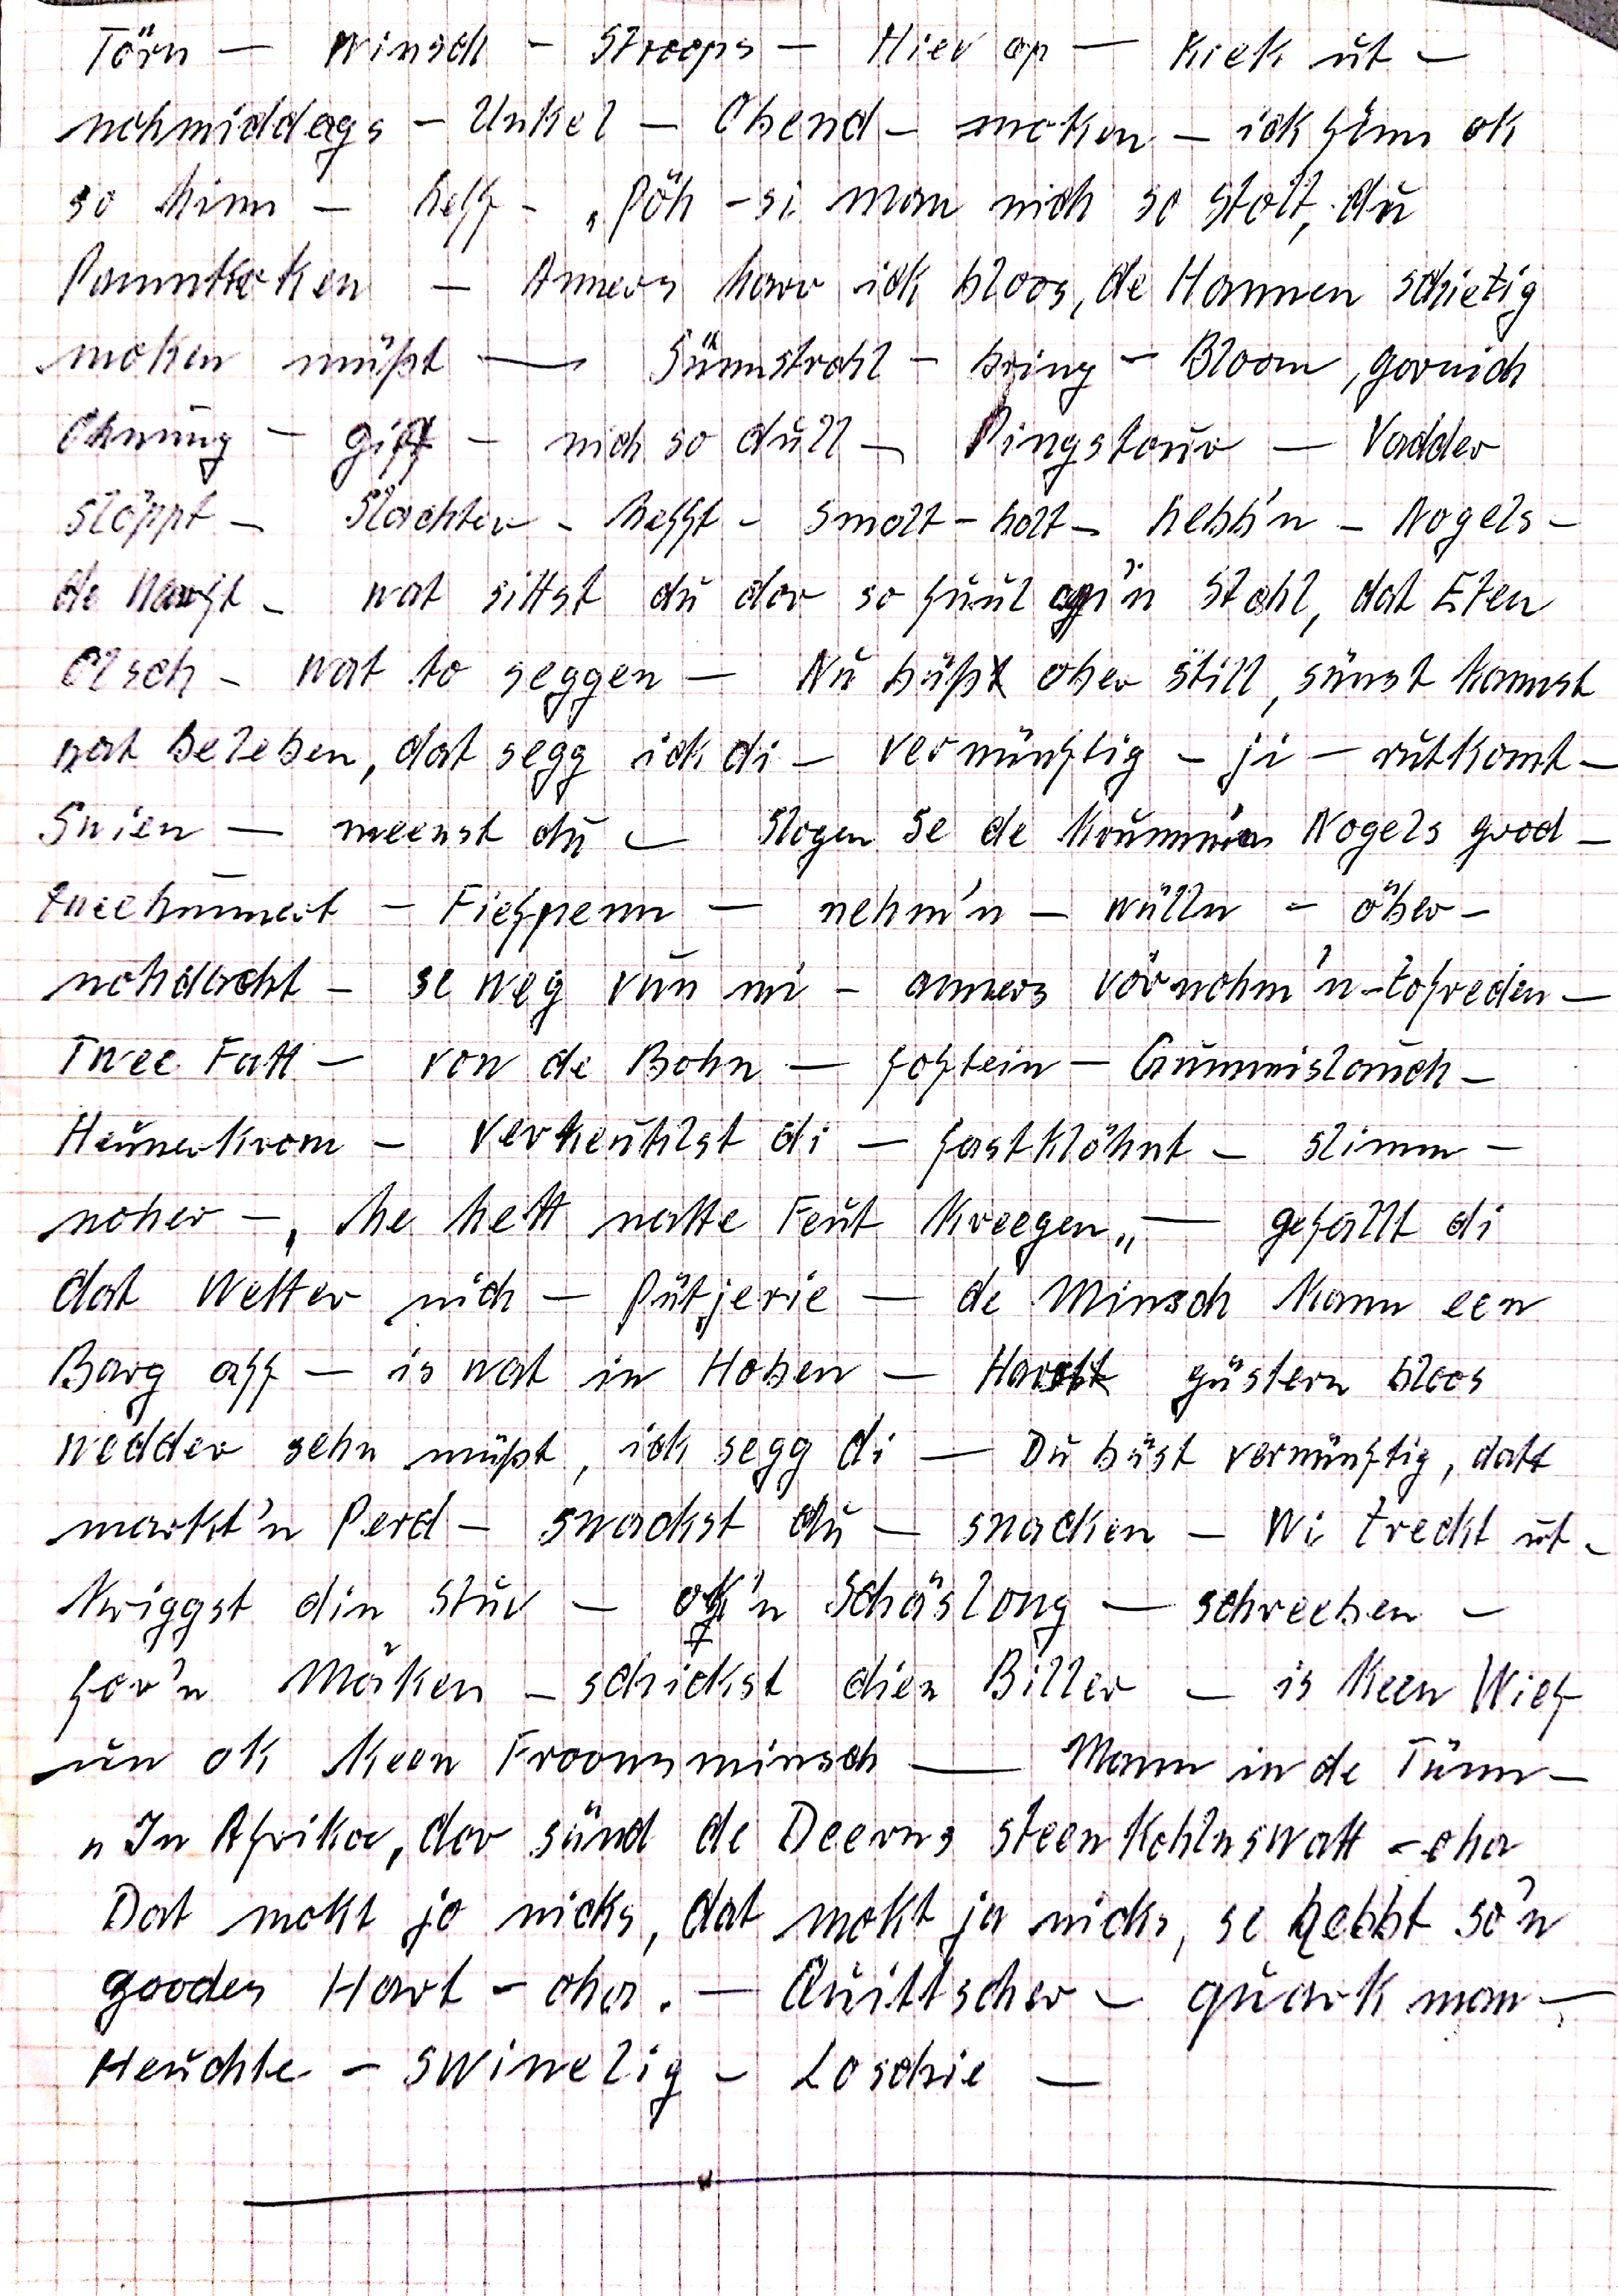 Törn — Winsch — Stroops — Hiev op — Kiek ut —
nohmiddags — Unkel — Obend — moken — ick finn ok
so hinn — heff — „Pöh — si man nich so stolt, du
Pannkoken — Anners harr ick bloos, de Hannen schietig
moken müßt — Sünnstrohl — bring — Bloom, gornich
Ohnung — giff — nich so dull — Pingstour — Vadder
slöppt — Slachter — hefft — smolt — holt — hebb'n — Nogels —
de Harfst — wat sittst du dor so fuul op'n Stohl, dat Eten
Olsch — wat to seggen — Nu büßt ober still, sünst kannst
wat beleben, dat segg ick di — vernünftig — ji — rutkomt —
Snien — meenst du — Slogen se de krummen Nogels grod —
tweehunnert — Fiefpenn — nehm'n — wülln — öber —
nohdacht — se weg vun mi — anners vörnohm'n — tofreden —
Twee Fatt — von de Bohn — foftein — Gummislauch —
Heunerkrom — verkeuhlst di — fastklöhnt — slimm —
noher — „he hett natte Feut kreegen„ — gefallt di
dat Wetter nich — Pütjerie — de Minsch kann een
Barg aff — is wat in Hoben — Harst güstern bloos
wedder sehn müßt, ick segg di — Du büst vernünftig, datt
markt'n Perd — snackst du — snacken — Wi treckt ut —
kriggst din Stuv — ok'n Schäslong — schreeben —
för'n Mäken — schickst dien Biller — is keen Wief
un ok keen Froonsminsch — Mann in de Tünn —
„In Afrika, dor sünd de Deerns steenkohlnswatt — oha
Dat mokt jo nicks, dat mokt ja nicks, se hebbt so'n
goodes Hart — oha. — Quittscher — quark man —
Heuchte — swinelig — Loschie —